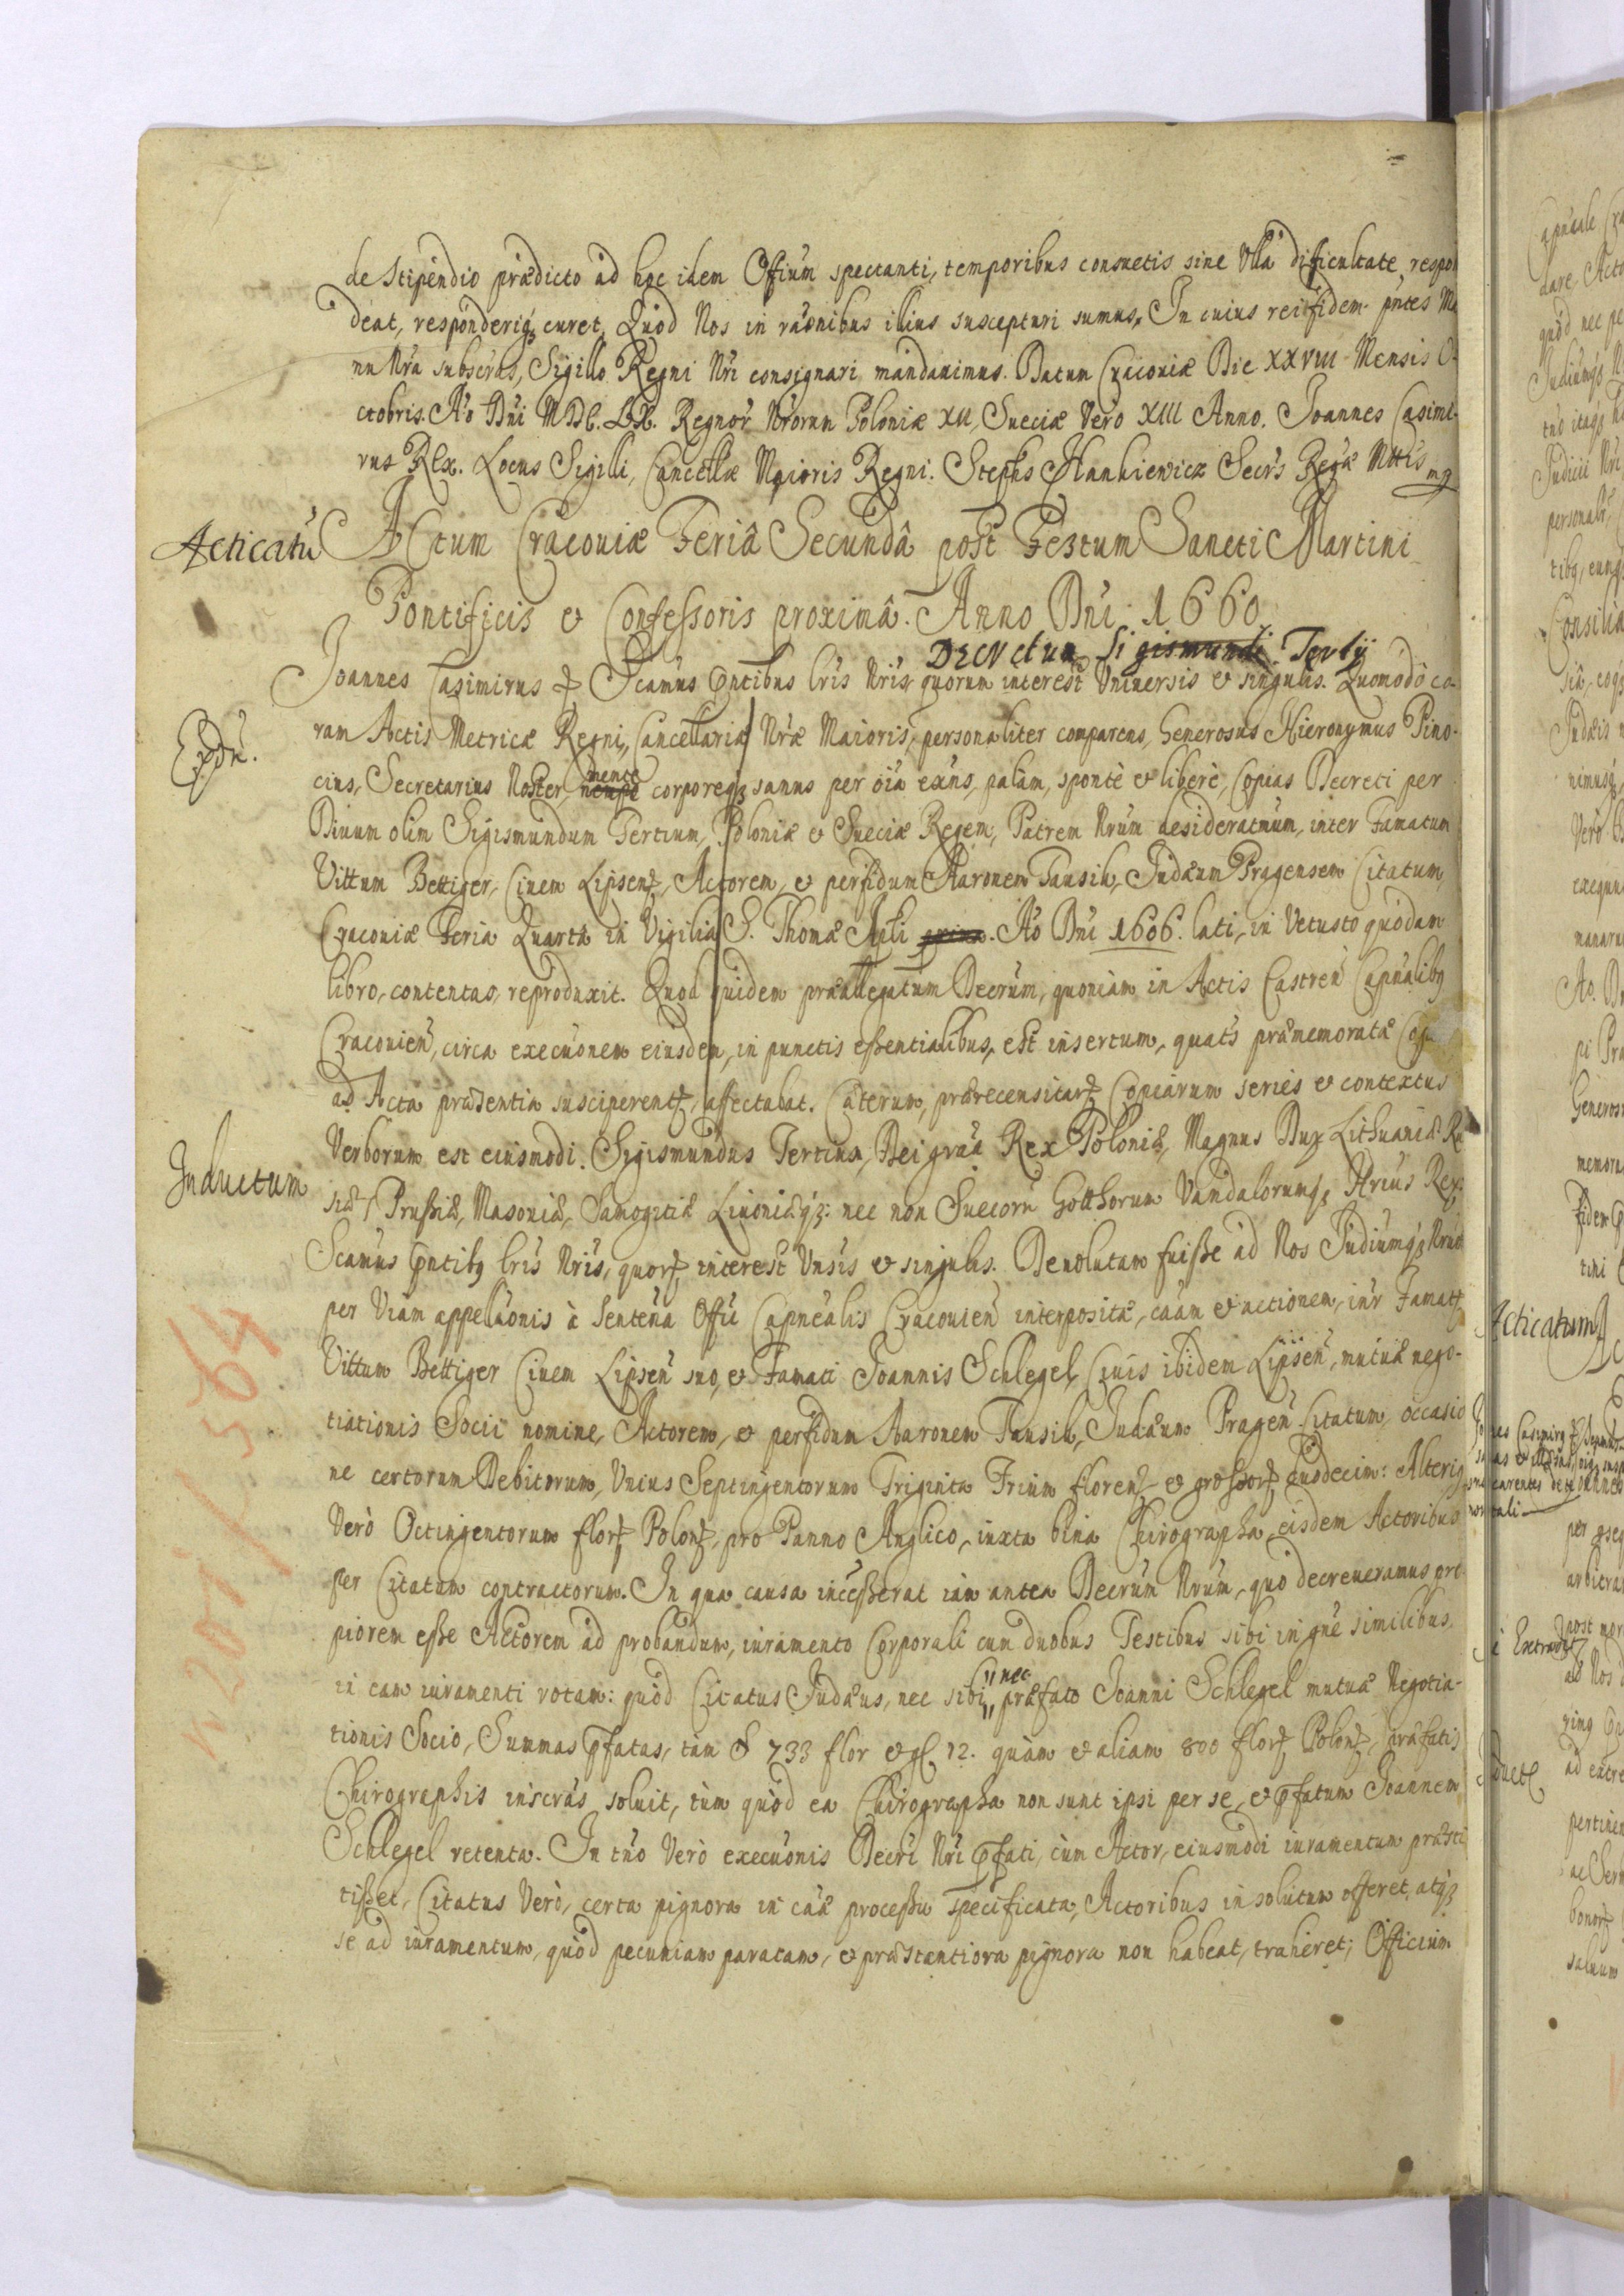 de Stipendio prædicto ad hoc idem Offium spectanti, temporibus consuetis sine Ulla difficultate, respon
deat, responderiq3 curet, Quod Nos in raõnibus illius suscepturi sumus. In cuius rei fidem pntes Ma
nu Nra subscrăs, Sigillo Regni Nri consignari mandavimus. Datum Cracoviæ Die XXVIII Mensis O-
ctobris. Ao Dni MDC.LX. Regnor Nrorum Poloniæ XII, Sueciæ Vero XIII Anno. Joannes Casimi-
rus Rex. Locus Sigilli, Cancellæ Maioris Regni. Stephs Hankiewicz Secrs Regæ Mttis mp
Acticatu
Actum Cracoviæ Feriâ Secundâ post Festum Sancti Martini
Pontificis et Confessoris proximâ. Anno Dni 1660
Decretum Sigismundi Tertij
Joannes Casimirus Scamus Pntibus lris Nris, quorum interest Universis et singulis. Quomodò co-
ram Actis Metricæ Regni, Cancellariæ Nræ Maioris, personaliter comparens, Generosus Hieronymus Pino-
cius, Secretarius Noster, mente corporeq3 sanus per oia exns, palam, spontè et liberè, Copias Decreti per
Divum olim Sigismundum Tertium, Poloniæ et Sueciæ Regem, Patrem Nrum desideratmum, inter Famatum
Vittum Bettiger, Civem Lipsen, Actorem, et perfidum Aaronem Tausik, Judæum Pragensem Citatum,
Cracoviæ Feria Quarta in Vigilia S. Thomæ Apli. Ao Dni 1606. lati, in Vetusto quodam
libro, contentas, reproduxit. Quod quidem præallegatum Decrum, quoniam in Actis Castren Capnalibq
Cracovien, circa execuõnem eiusdem, in punctis essentialibus, est insertum, quats præmemoratæ
ad Acta præsentia susciperent, affectabat. Cæterum, prærecensitar Copiarum series et contextus
Inductum
Verborum est eiusmodi. Sigismundus Tertius, Dei gräa Rex Poloniæ, Magnus Dux Lithuaniæ Ru
siæ, Prussiæ, Masoviæ, Samogitiæ Livoniæq3: nec non Suecorū Gotthorum Vandalorumq3 Hrius Rex.
Scamus Pntibq lris Nris, quor interest Unsis et singulis. Devolutam fuisse ad Nos Judiumq3 Nrum
per Viam appellaõnis à Sentena Offii Capnealis Cracovien interpositæ, caam et actionem, intr Famat
Vittum Bettiger Civem Lipsen suo, et Famati Joannis Schlegel, Civis ibidem Lipsen, mutuæ nego-
tiationis Socii nomine, Actorem, et perfidum Aaronem Tausik, Judæum Pragen Citatum, occasio
ne certorum Debitorum, Unius Septingentorum Triginta Trium floren et grossor duodecim: Alteriq
Verò Octingentorum flor Polon, pro Panno Anglico, iuxta bina Chirographa, eisdem Actoribus
per Citatum contractorum. In qua causa incesserat iam antea Decrum Nrum, quo decreveramus pro
piorem esse Actorem ad probandum, iuramento Corporali cum duobus Testibus sibi in gne similibus,
ii eam iuramenti rotam: quòd Citatus Judæus, nec sibi, nec præfato Joanni Schlegel mutuæ Negotia-
tionis Socio, Summas pfatas, tàm 733 flor et gl 12. quàm et aliam 800 flor Polon, præfatis
Chirographis inscrăs soluit, tùm quòd ea Chirographa non sunt ipsi per se, et pfatum Joannem
Schlegel retenta. In tno Verò execuõnis Decri Nri pfati, cùm Actor, eiusmodi iuramentum præsti
tisset, Citatus Verò, certa pignora in caæ processu specificata, Actoribus in solutum offeret, atq3
se ad iuramentum, quòd pecuniam paratam, et præstantiora pignora non habeat, traheret; Officium
k 201 / 564
Acticatum